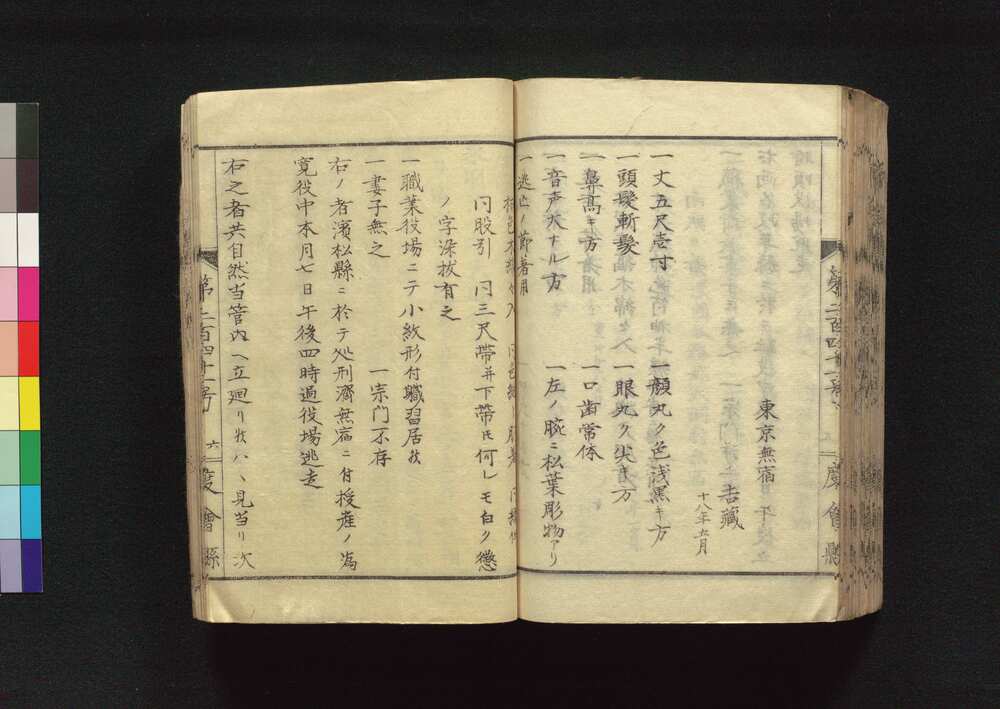 東京無宿
吉藏
十八年五月
一丈五尺壱寸
一顔丸ク色浅黒キ方
一頭髪斬髪
一眼丸ク尖キ方
一鼻高キ方
一口歯常体
一音声大ナル方
一左ノ腕ニ松葉彫物アリ
一逃亡ノ節着用
同股引 同三尺帯并下帯氏何レモ白ク懲
ノ字染抜有之
一職業役場ニテ小紋形付職習居候
一妻子無之
一宗門不存
右ノ者濱松縣ニ於テ処刑濟無宿ニ付授産ノ為
寛役中本月七日午後四時過役場逃走
右之者共自然当管内ヘ立廻リ候ハヽ見当リ次
第二百四十一号
六
度會縣